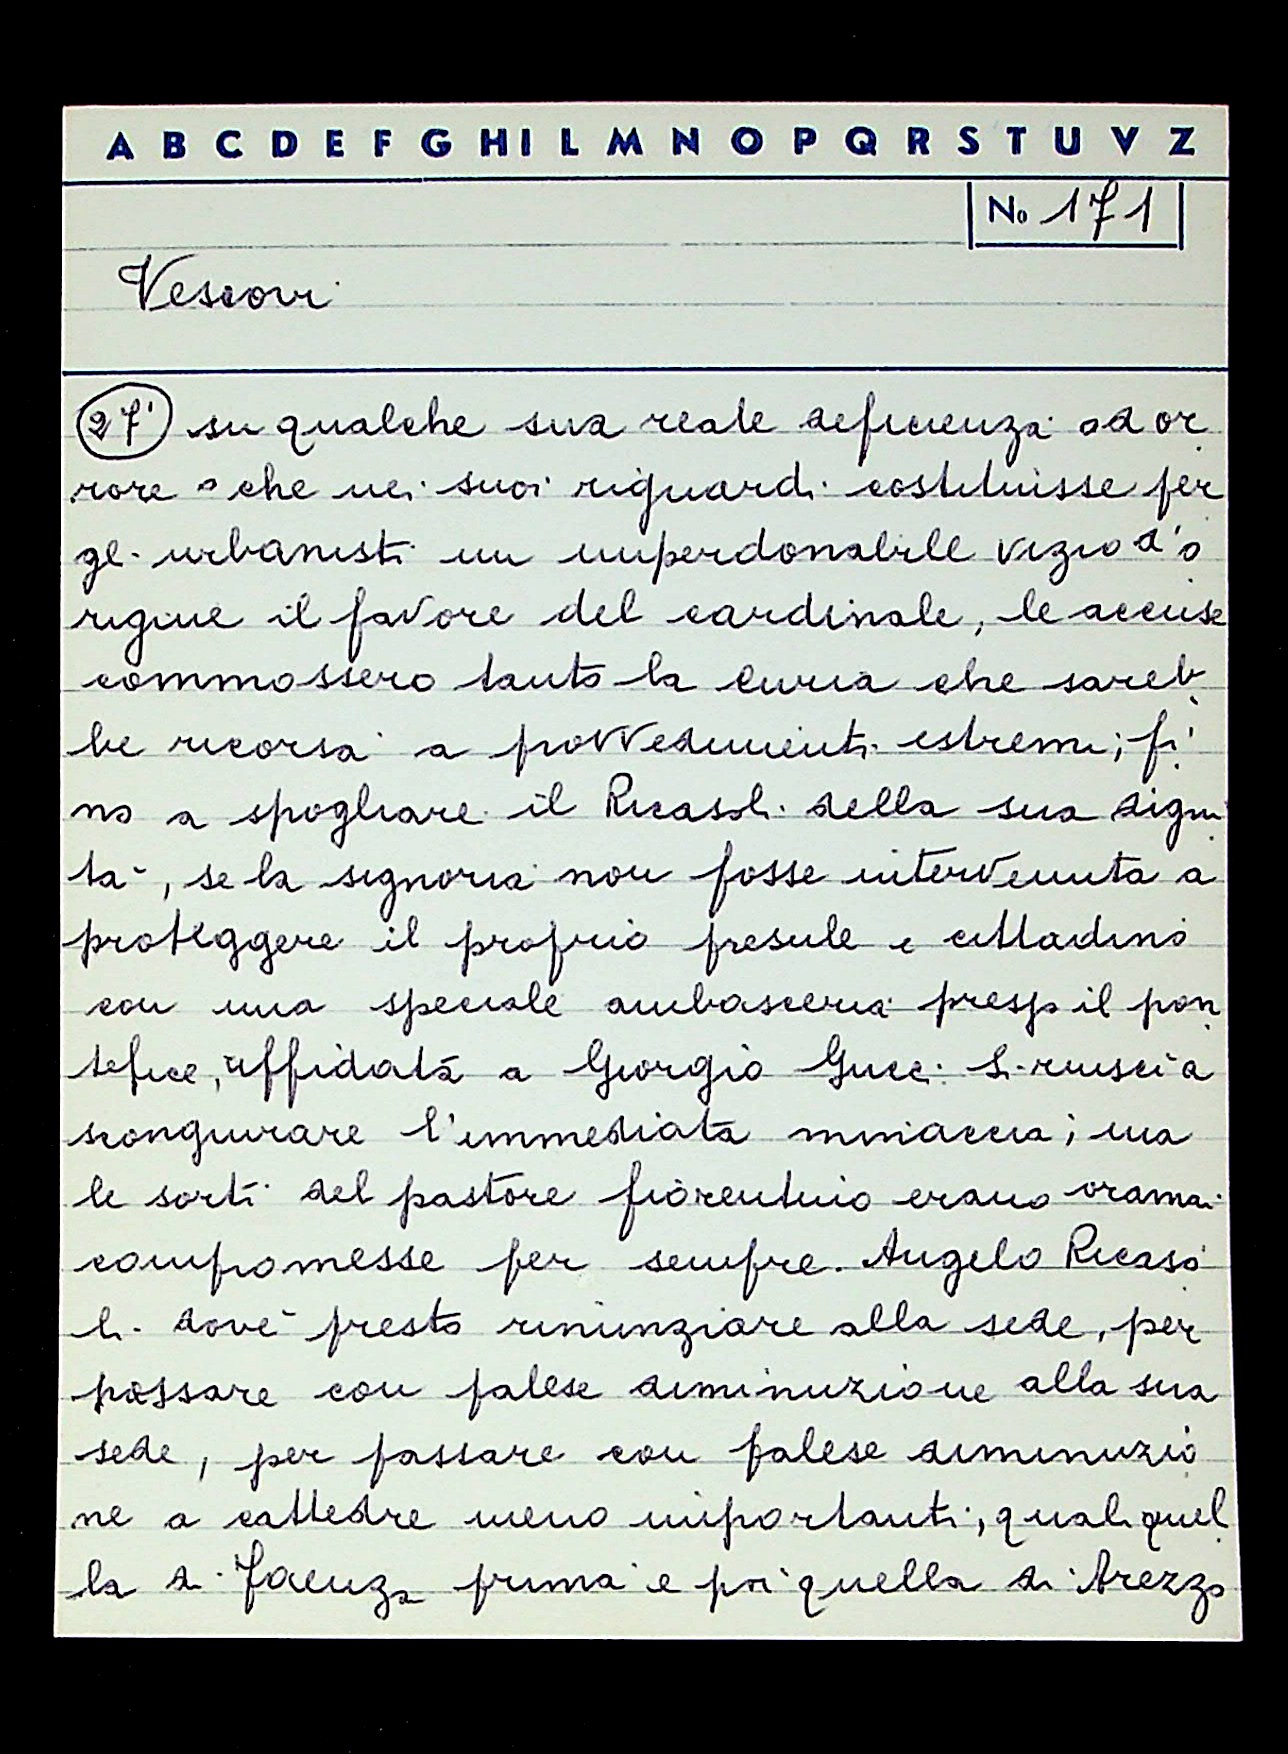 A B C D E F G H I L M N O P Q R S T U V Z
No 171
Vescovi
27) su qualche sua reale deficienza od or
rore o che nei suoi riguardi costituisse per
gli urbanisti un imperdonabile vizio d'o
rigine il favore del cardinale, le accuse
commossero tanto la curia che sareb
be ricorsa a provvedimenti estremi; fi
no a spogliare il Ricasoli della sua digni
tà, se la signoria non fosse intervenuta a
proteggere il proprio presule e cittadino
con una speciale ambasceria presso il pon
tefice, affidata a Giorgio Gucci. Si riuscì a
scongiurare l'immediata minaccia; ma
le sorti del pastore fiorentino erano oramai
compromesse per sempre. Angelo Ricaso
li dovè presto rinunziare alla sede, per
passare con palese diminuzione alla sua
sede, per passare con palese diminuzio
ne a cattedre meno importanti, quali quel
la di Faenza prima e poi quella di Arezzo